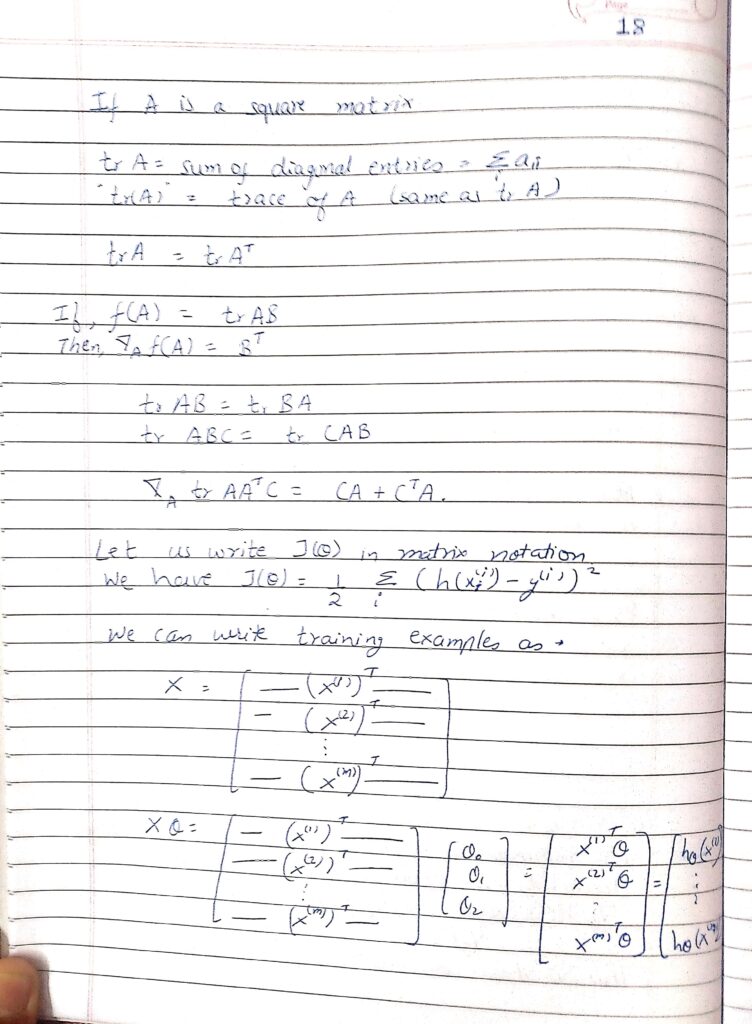 Page
18
If A is a square matrix
tr A = sum of diagonal entries = Σ_i a_ii
"tr(A)" = trace of A (same as tr A)
tr A = tr A^T
If, f(A) = tr AB
Then, ∇_A f(A) = B^T
tr AB = tr BA
tr ABC = tr CAB
∇_A tr AA^T C = CA + C^T A.
Let us write J(θ) in matrix notation
We have J(θ) = 1/2 Σ_i (h(x^(i)) - y^(i))^2
We can write training examples as →
X = [ — (x^(1))^T — ; — (x^(2))^T — ; ⋮ ; — (x^(m))^T — ]
Xθ = [ — (x^(1))^T — ; — (x^(2))^T — ; ⋮ ; — (x^(m))^T — ] [ θ_0 ; θ_1 ; θ_2 ] = [ x^(1)T θ ; x^(2)T θ ; ⋮ ; x^(m)T θ ] = [ h_θ(x^(1)) ; ⋮ ; h_θ(x^(m)) ]